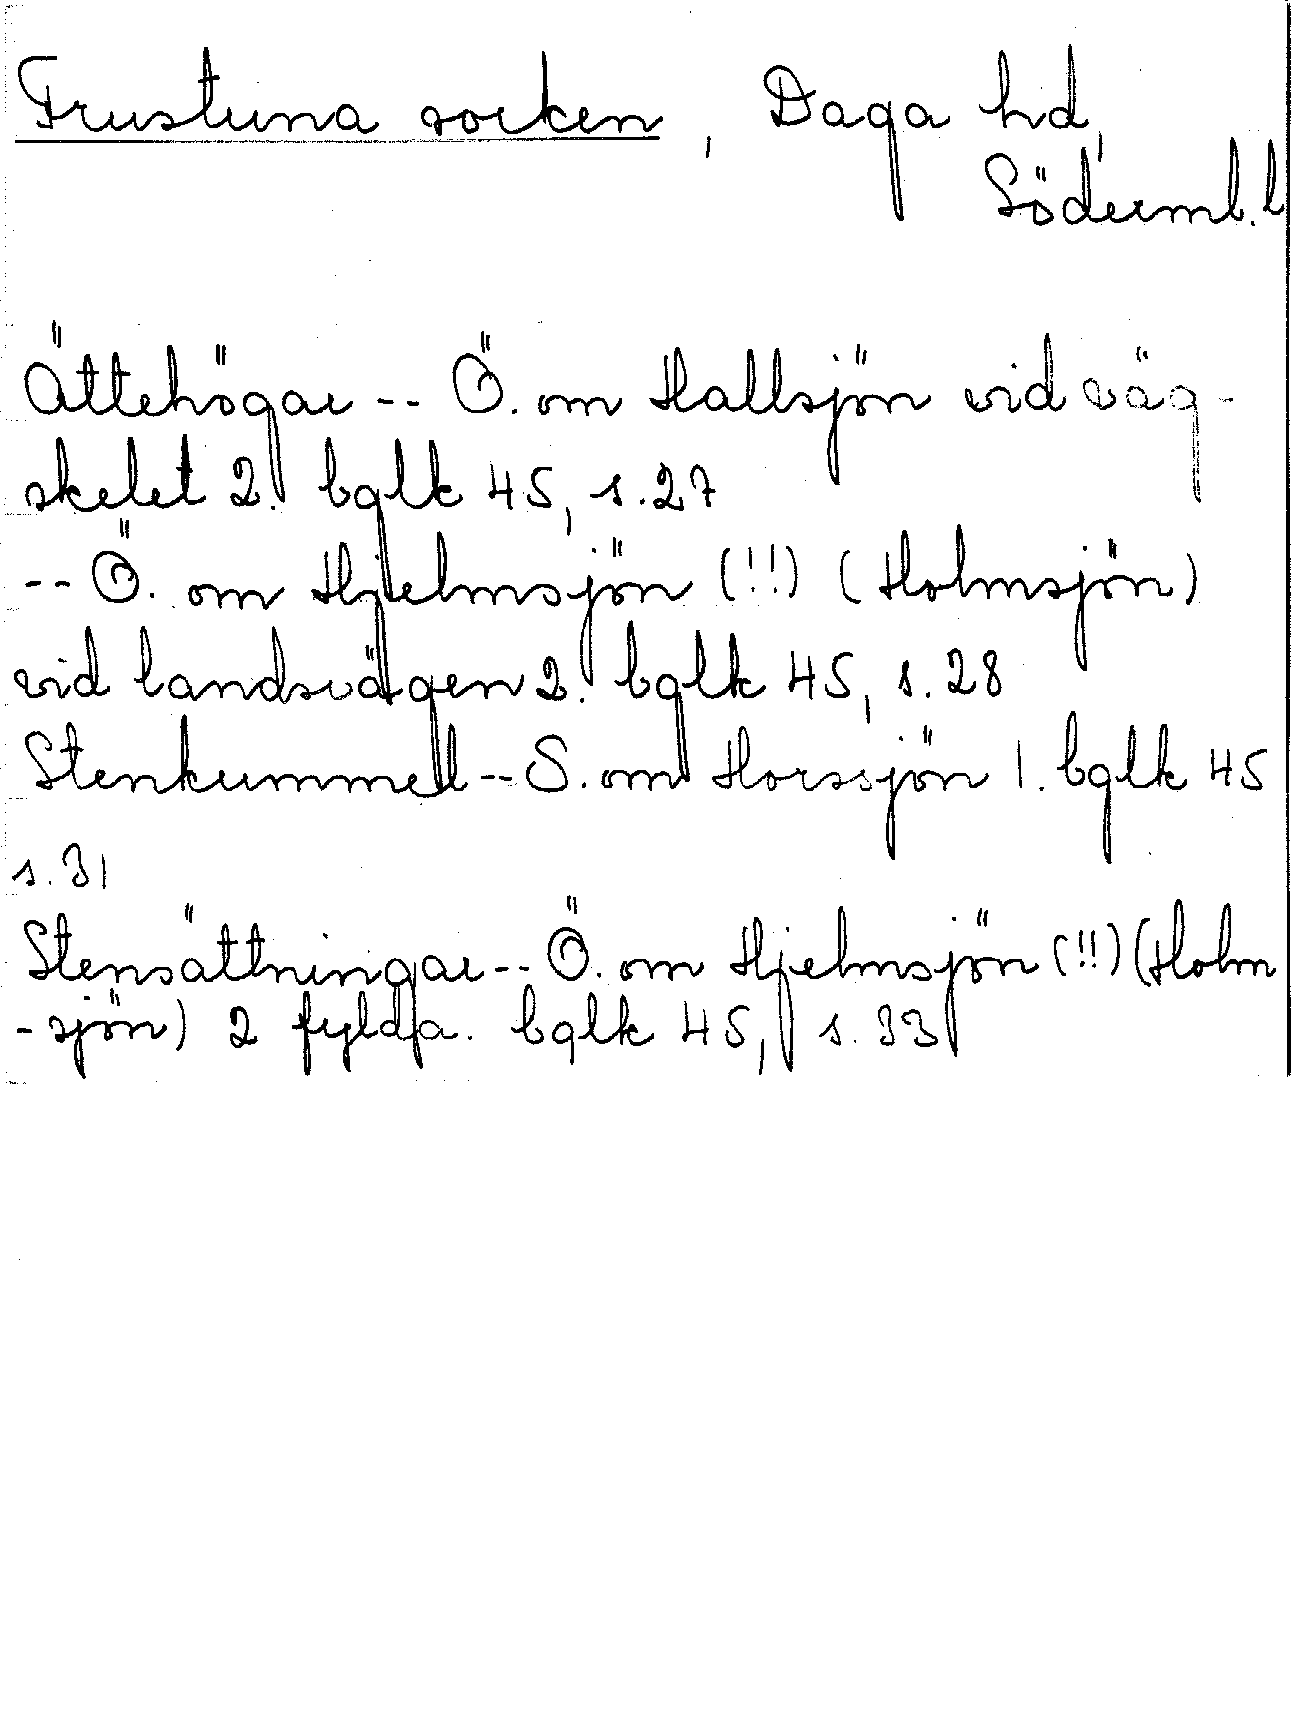 Frustuna socken, Daga hd,
Söderml. l
Ättehögar -- Ö. om Hallsjön vid väg-
skelet 2. bglk 45, s. 27
-- Ö. om Hjelmsjön (!!) (Holmsjön)
vid landsvägen 2. bglk 45, s. 28
Stenkummel -- S. om Horssjön 1. bglk 45
s. 31
Stensättningar -- Ö. om Hjelmsjön (!!) (Holm
-sjön) 2 fyldfa. bglk 45, s. 33